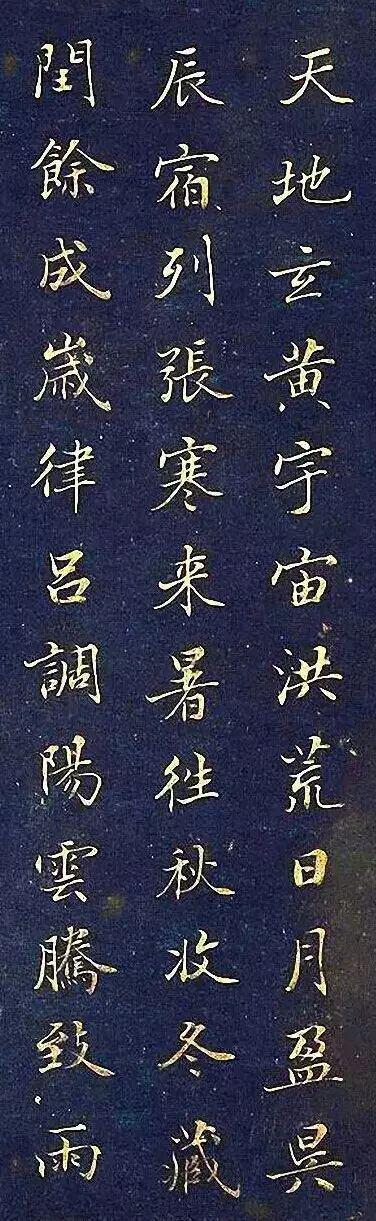 天地玄黄宇宙洪荒日月盈昃
辰宿列張寒来暑往秋收冬藏
閏餘成歲律呂調陽雲騰致雨